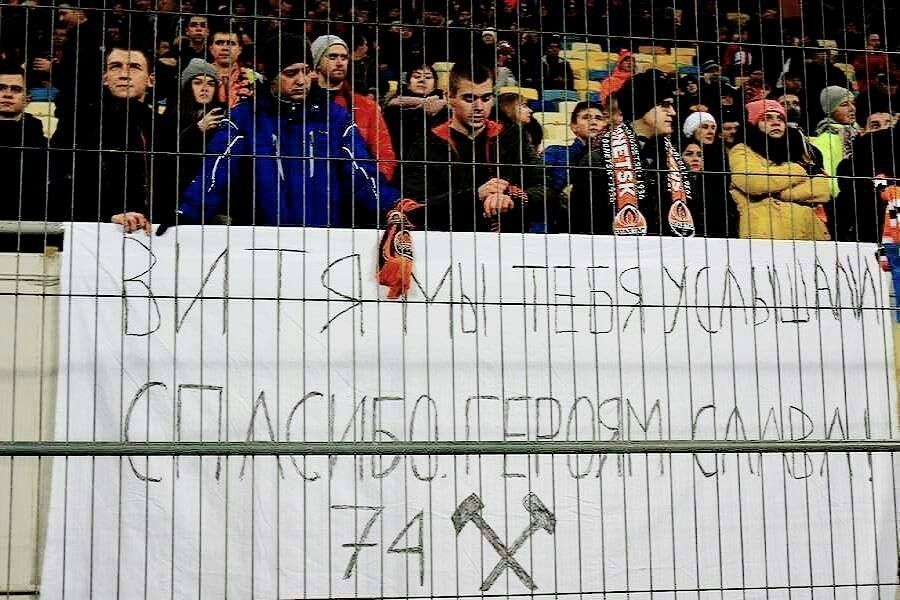 ВИТЯ МЫ ТЕБЯ УСЛЫШАЛИ
СПАСИБО. ГЕРОЯМ СЛАВА!
74